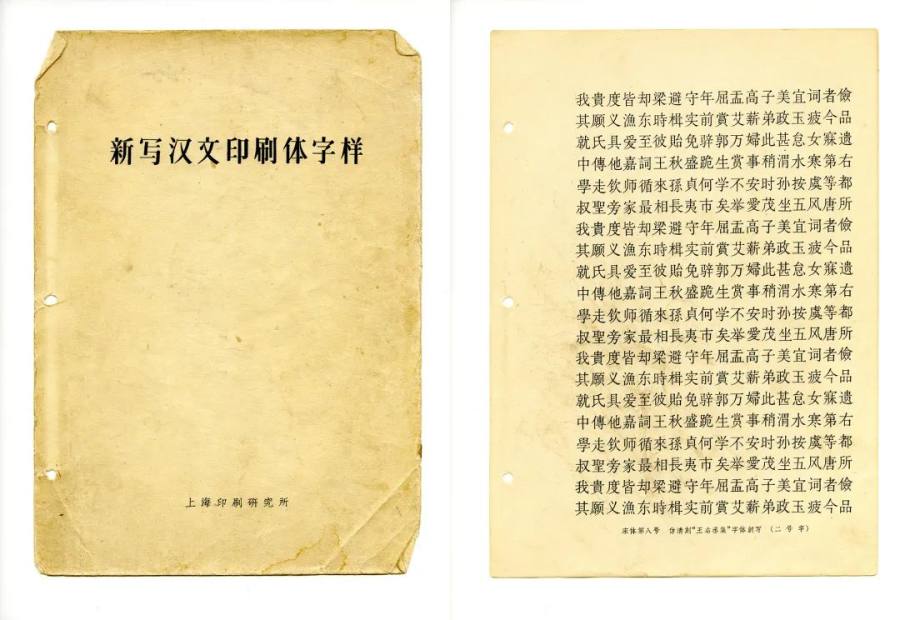 新写汉文印刷体字样
上海印刷研究所
我貴度皆却梁避守年屈孟高子美宜词者儉
其願义漁东時楫实前賞艾薪弟政玉疲今品
就氏具爱至彼貽免骍郭万婦此甚怠女寐遺
中傳他嘉詞王秋盛跪生赏事稍渭水寒第右
學走钦师循來孫貞何学不安时孙按虞等都
叔聖旁家最相長夷市矣举愛茂坐五风唐所
我貴度皆却梁避守年屈孟高子美宜词者儉
其願义漁东時楫实前賞艾薪弟政玉疲今品
就氏具爱至彼貽免骍郭万婦此甚怠女寐遺
中傳他嘉詞王秋盛跪生赏事稍渭水寒第右
學走钦师循來孫貞何学不安时孙按虞等都
叔聖旁家最相長夷市矣举愛茂坐五风唐所
我貴度皆却梁避守年屈孟高子美宜词者儉
其願义漁东時楫实前賞艾薪弟政玉疲今品
就氏具爱至彼貽免骍郭万婦此甚怠女寐遺
中傳他嘉詞王秋盛跪生赏事稍渭水寒第右
學走钦师循來孫貞何学不安时孙按虞等都
叔聖旁家最相長夷市矣举愛茂坐五风唐所
我貴度皆却梁避守年屈孟高子美宜词者儉
其願义漁东時楫实前賞艾薪弟政玉疲今品
宋体第八号 仿清刻“王右丞集”字体创写 (二号字)